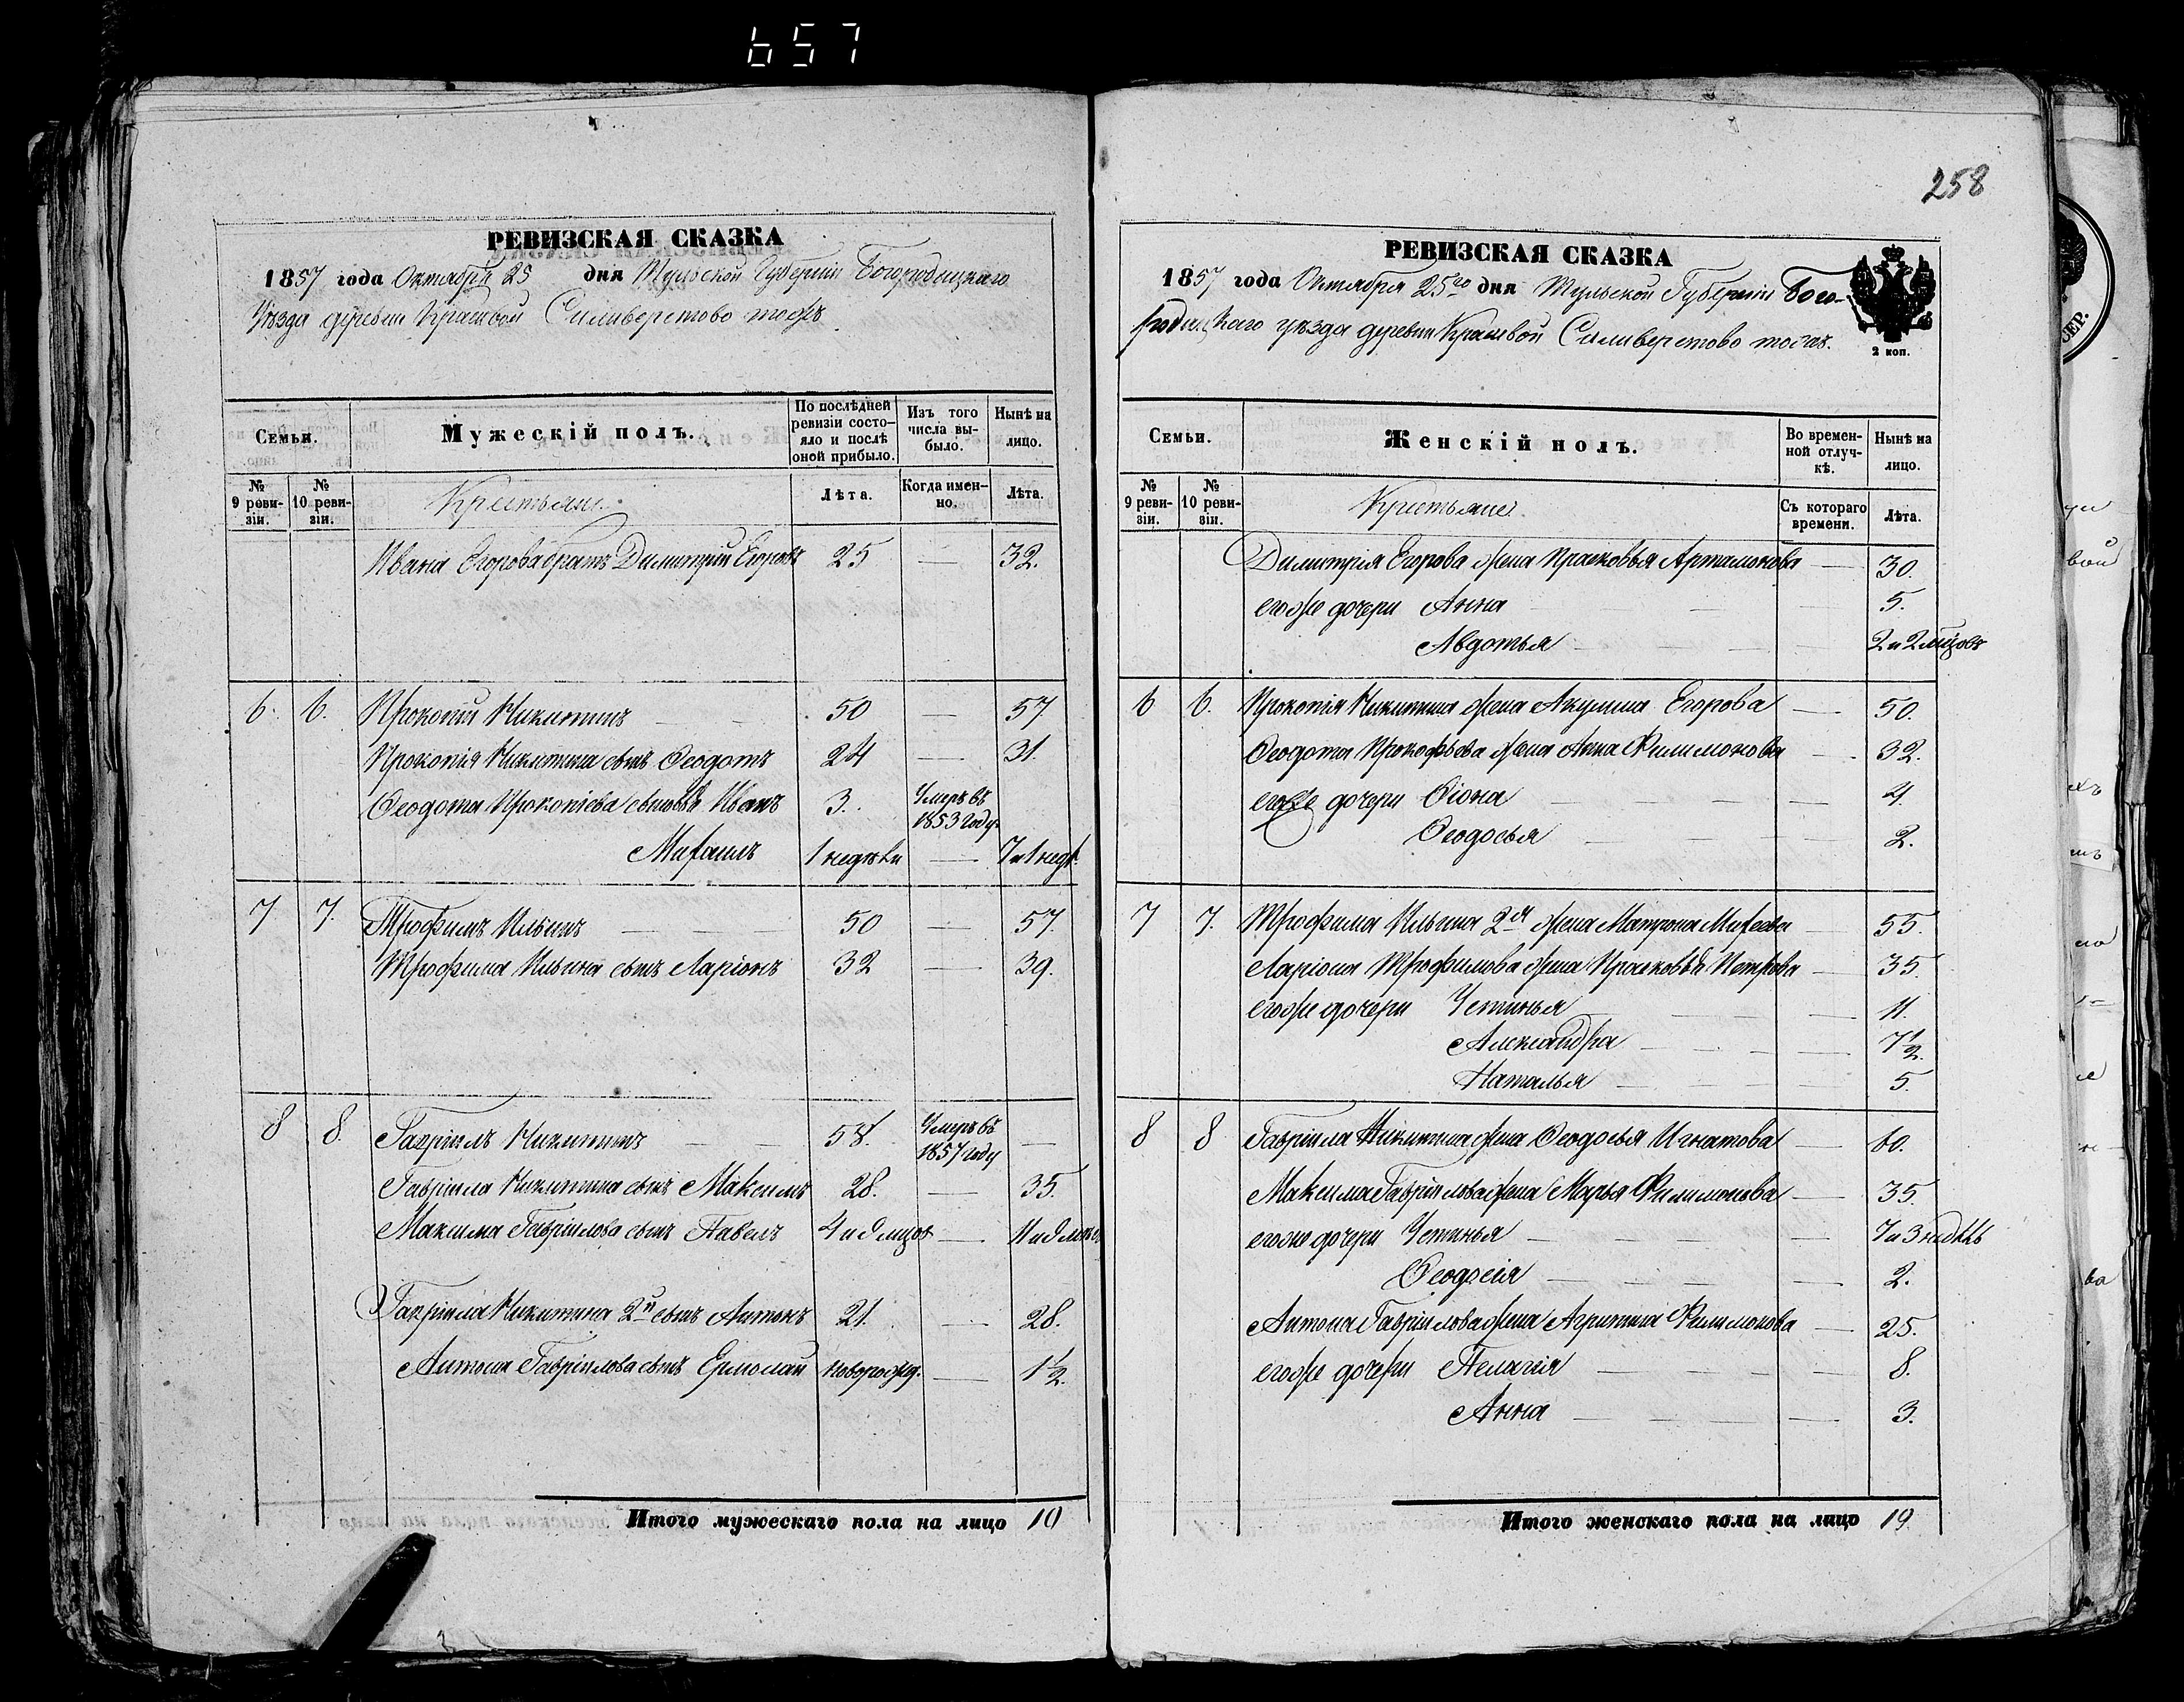 657
РЕВИЗСКАЯ СКАЗКА
1857 года Октября 25 дня Тульской Губерніи Богородицкаго
Уѣзда деревни Красивой Сильверстово тожъ
Семьи.
Мужескій полъ.
По послѣдней ревизіи состо-яло и послѣ оной прибыло.
Изъ того числа вы-было.
Нынѣ на лицо.
№ 9 реви-зіи.
№ 10 реви-зіи.
Крестьяне.
Лѣта.
Когда имен-но.
Лѣта.
Ивана Егорова братъ Димитрій Егоровъ 25 — 32.
6. 6. Прокопій Никитинъ 50 — 57
Прокопія Никитина сынъ Ѳеодотъ 24 — 31.
Ѳеодота Прокопіева сыновья Иванъ 3. Умеръ въ 1853 году
Михаилъ 1 недѣли — 7 и 1 недѣ.
7 7. Трофимъ Ильинъ 50 — 57.
Трофима Ильина сынъ Ларіонъ 32 — 39.
8 8. Гавріилъ Никитинъ 58. Умеръ въ 1857 году —
Гавріила Никитина сынъ Максимъ 28. — 35.
Максима Гавріилова сынъ Павелъ 4 и 8 мцов — 11 и 8
Гавріила Никитина 2й сынъ Антонъ 21. — 28.
Антона Гавріилова сынъ Ермолай новорожд. — 1½.
Итого мужескаго пола на лицо 10
258
РЕВИЗСКАЯ СКАЗКА
1857 года Октября 25го дня Тульской Губерніи Бого-
родицкаго уѣзда деревни Красивой Сильверстово тожъ.
2 коп.
Семьи.
Женскій полъ.
Во времен-ной отлуч-кѣ.
Нынѣ на лицо.
№ 9 реви-зіи.
№ 10 реви-зіи.
Крестьяне.
Съ котораго времени.
Лѣта.
Димитрія Егорова жена Прасковья Артамонова — 30.
егоже дочери Анна 5.
Авдотья — 2 и 2 мѣцовъ
6 6. Прокопія Никитина жена Акулина Егорова — 50.
Ѳеодота Прокофьева жена Анна Филимонова — 32.
егоже дочери Ѳіона — 4.
Ѳеодосья — 2.
7 7. Трофима Ильина 2я жена Матрона Михеева — 55.
Ларіона Трофимова жена Прасковья Петрова — 35.
егоже дочери Устинья — 11.
Александра — 7½.
Наталья — 5.
8 8 Гавріила Никитина жена Ѳеодосья Игнатова — 60.
Максима Гавріилова жена Марья Филимонова — 35.
егоже дочери Устинья — 7 и 3 недѣль
2.
Антона Гавріилова жена Агрипина Филимонова — 25.
егоже дочери Пелагія — 8.
Анна — 3.
Итого женскаго пола на лицо 19
СЕР.